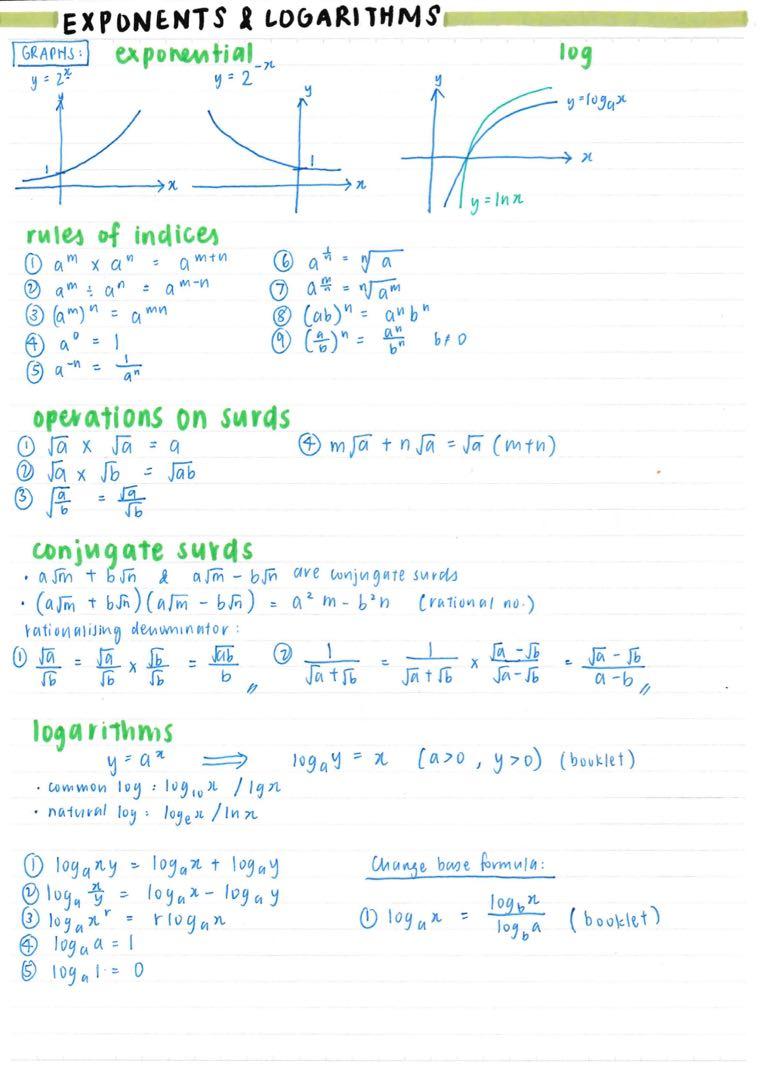 EXPONENTS & LOGARITHMS
GRAPHS: exponential log
y = 2ˣ y = 2⁻ˣ
y y y
1 x 1 x x
y=logₐx
y=lnx
rules of indices
① aᵐ × aⁿ = aᵐ⁺ⁿ
② aᵐ ÷ aⁿ = aᵐ⁻ⁿ
③ (aᵐ)ⁿ = aᵐⁿ
④ a⁰ = 1
⑤ a⁻ⁿ = 1/aⁿ
⑥ a^(1/n) = ⁿ√a
⑦ a^(m/n) = ⁿ√aᵐ
⑧ (ab)ⁿ = aⁿbⁿ
⑨ (a/b)ⁿ = aⁿ/bⁿ b≠0
operations on surds
① √a × √a = a
② √a × √b = √ab
③ √(a/b) = √a/√b
④ m√a + n√a = √a (m+n)
conjugate surds
· a√m + b√n & a√m − b√n are conjugate surds
· (a√m + b√n)(a√m − b√n) = a²m − b²n (rational no.)
rationalising denominator:
① √a/√b = √a/√b × √b/√b = √ab/b //
② 1/(√a+√b) = 1/(√a+√b) × (√a−√b)/(√a−√b) = (√a−√b)/(a−b) //
logarithms
y = aˣ ⟹ logₐy = x (a>0, y>0) (booklet)
· common log: log₁₀x / lgx
· natural log: logₑx / lnx
① logₐxy = logₐx + logₐy
② logₐ x/y = logₐx − logₐy
③ logₐxʳ = rlogₐx
④ logₐa = 1
⑤ logₐ1 = 0
Change base formula:
① logₐx = log_b x / log_b a (booklet)